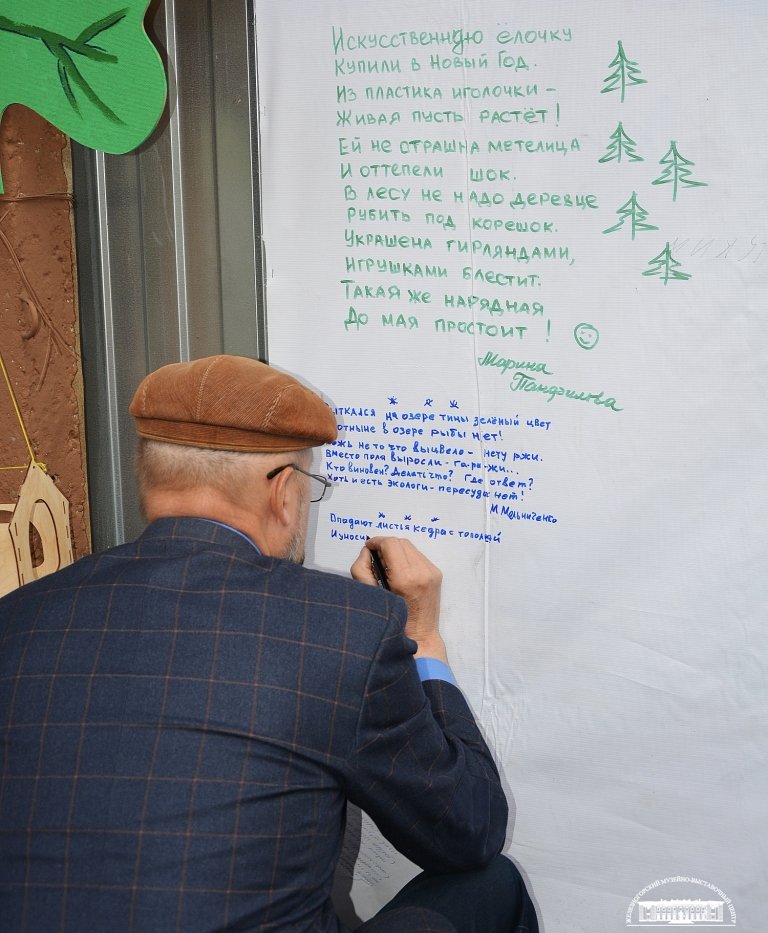 Искусственную ёлочку
Купили в Новый Год.
Из пластика иголочки -
Живая пусть растёт!
Ей не страшна метелица
И оттепели шок.
В лесу не надо деревце
Рубить под корешок.
Украшена гирляндами,
Игрушками блестит.
Такая же нарядная
До мая простоит!
Марина
Панфилова
на озере тины зелёный цвет
в озере рыбы нет!
не то что выцвело - нету ржи.
Вместо поля выросли - га-ра-жи...
Кто виновен? Делать что? Где ответ?
Хоть и есть экологи - пересуда нет!
М Мельниченко
Опадают листья кедра с тополей
ЖЕЛЕЗНОГОРСКИЙ МУЗЕЙНО-ВЫСТАВОЧНЫЙ ЦЕНТР